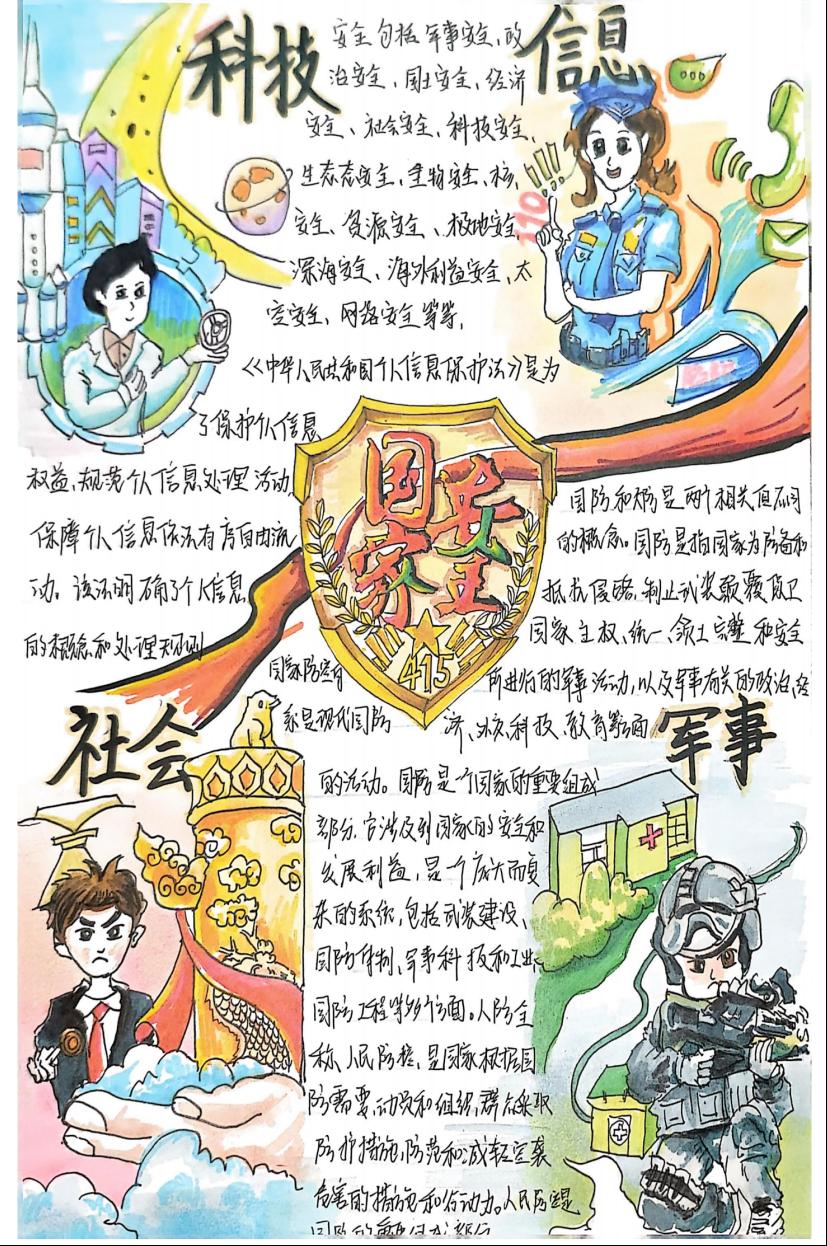 科技
信息
安全包括军事安全、政
治安全、国土安全、经济
安全、社会安全、科技安全、
生态态安全、生物安全、核
安全、资源安全、极地安全
深海安全、海外利益安全、太
空安全、网络安全等等,
110
《中华人民共和国个人信息保护法》是为
了保护个人信息
权益、规范个人信息处理活动
保障个人信息依法有序自由流
动。该法明确了个人信息
的概念和处理规则
国家安全
415
国防和
是两个相关但不同
的概念。国防是指国家为防备和
抵抗侵略,制止武装颠覆保卫
国家主权、统一、领土完整和安全
所进行的军事活动,以及军事有关的政治、经
济、外交、科技、教育等方面
国家防空
系是现代国防
社会
军事
的活动。国防是一个国家的重要组成
部分,它涉及到国家的安全和
发展利益,是一个庞大而复
杂的系统,包括武装建设、
国防体制、军事科技和工业、
国防工程等多个方面。人防全
称、人民防控,是国家根据国
防需要,动员和组织群众采取
防护措施,防范和减轻空袭
危害的措施和行动力。人民防空是